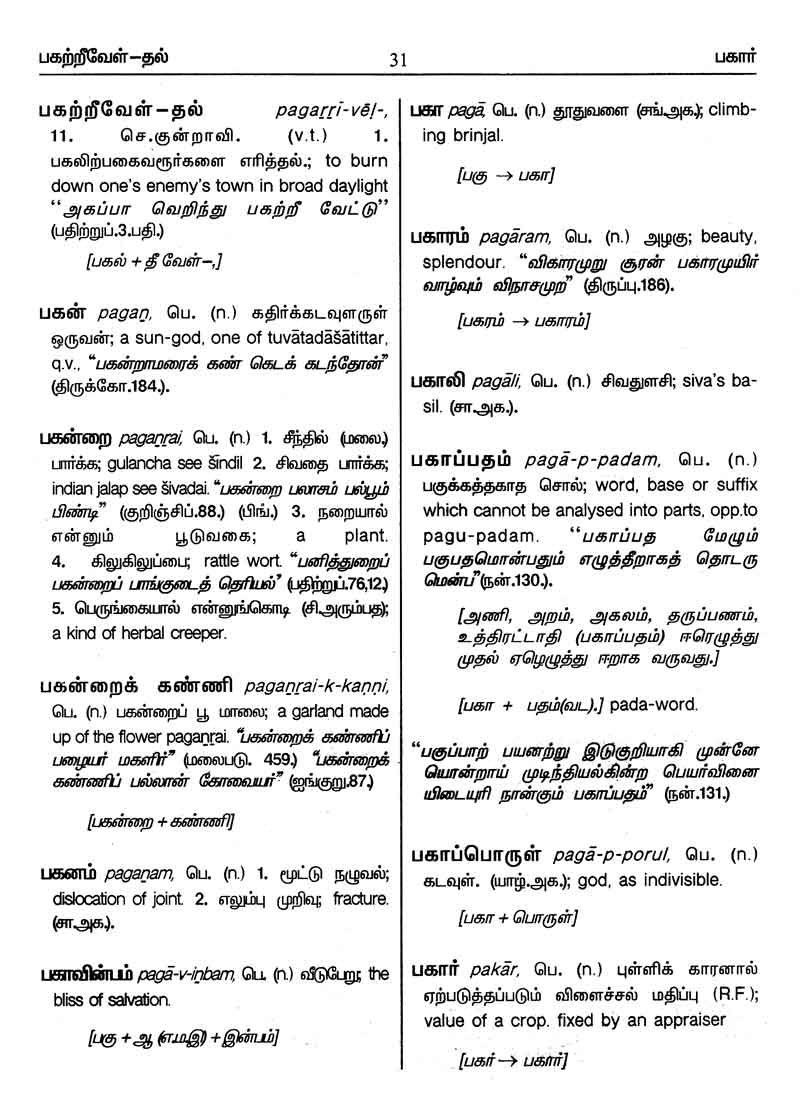 பகற்றீவேள்–தல்
31
பகார்
பகற்றீவேள்–தல் pagaṟṟī-vēḷ-,
11. செ.குன்றாவி. (v.t.) 1.
பகலிற்பகைவரூர்களை எரித்தல்.; to burn
down one's enemy's town in broad daylight
“அகப்பா வெறிந்து பகற்றீ வேட்டு”
(பதிற்றுப்.3.பதி.)
[பகல் + தீ வேள்–,]
பகன் pagaṉ, பெ. (n.) கதிர்க்கடவுளருள்
ஒருவன்; a sun-god, one of tuvātadāšātittar,
q.v., “பகன்றாமரைக் கண் கெடக் கடந்தோன்”
(திருக்கோ.184.).
பகன்றை pagaṉṟai, பெ. (n.) 1. சீந்தில் (மலை.)
பார்க்க; gulancha see šīndil 2. சிவதை பார்க்க;
indian jalap see šivadai. “பகன்றை பலாசம் பல்பூம்
பிண்டி” (குறிஞ்சிப்.88.) (பிங்.) 3. நறையால்
என்னும் பூடுவகை; a plant.
4. கிலுகிலுப்பை; rattle wort. “பனித்துறைப்
பகன்றைப் பாங்குடைத் தெரியல்” (பதிற்றுப்.76,12.)
5. பெருங்கையால் என்னுங்கொடி (சி.அரும்பத);
a kind of herbal creeper.
பகன்றைக் கண்ணி pagaṉṟai-k-kaṇṇi,
பெ. (n.) பகன்றைப் பூ மாலை; a garland made
up of the flower pagaṉṟai. “பகன்றைக் கண்ணிப்
பழையர் மகளிர்” (மலைபடு. 459.) “பகன்றைக்
கண்ணிப் பல்லான் கோவையர்” (ஐங்குறு.87.)
[பகன்றை + கண்ணி]
பகனம் pagaṉam, பெ. (n.) 1. மூட்டு நழுவல்;
dislocation of joint. 2. எலும்பு முறிவு; fracture.
(சா.அக.).
பகாவின்பம் pagā-v-iṉbam, பெ. (n.) வீடுபேறு; the
bliss of salvation.
[பகு + ஆ (எ.ம.இ) + இன்பம்]
பகா pagā, பெ. (n.) தூதுவளை (சங்.அக.); climb-
ing brinjal.
[பகு → பகா]
பகாரம் pagāram, பெ. (n.) அழகு; beauty,
splendour. “விகாரமுறு சூரன் பகாரமுயிர்
வாழ்வும் விநாசமுற” (திருப்பு.186).
[பகரம் → பகாரம்]
பகாலி pagāli, பெ. (n.) சிவதுளசி; siva's ba-
sil. (சா.அக.).
பகாப்பதம் pagā-p-padam, பெ. (n.)
பகுக்கத்தகாத சொல்; word, base or suffix
which cannot be analysed into parts, opp.to
pagu-padam. “பகாப்பத மேழும்
பகுபதமொன்பதும் எழுத்தீறாகத் தொடரு
மென்ப”(நன்.130.).
[அணி, அறம், அகலம், தருப்பணம்,
உத்திரட்டாதி (பகாப்பதம்) ஈரெழுத்து
முதல் ஏழெழுத்து ஈறாக வருவது.]
[பகா + பதம்(வட).] pada-word.
“பகுப்பாற் பயனற்று இடுகுறியாகி முன்னே
யொன்றாய் முடிந்தியல்கின்ற பெயர்வினை
யிடையுரி நான்கும் பகாப்பதம்” (நன்.131.)
பகாப்பொருள் pagā-p-porul, பெ. (n.)
கடவுள். (யாழ்.அக.); god, as indivisible.
[பகா + பொருள்]
பகார் pakār, பெ. (n.) புள்ளிக் காரனால்
ஏற்படுத்தப்படும் விளைச்சல் மதிப்பு (R.F.);
value of a crop. fixed by an appraiser
[பகர் → பகார்]